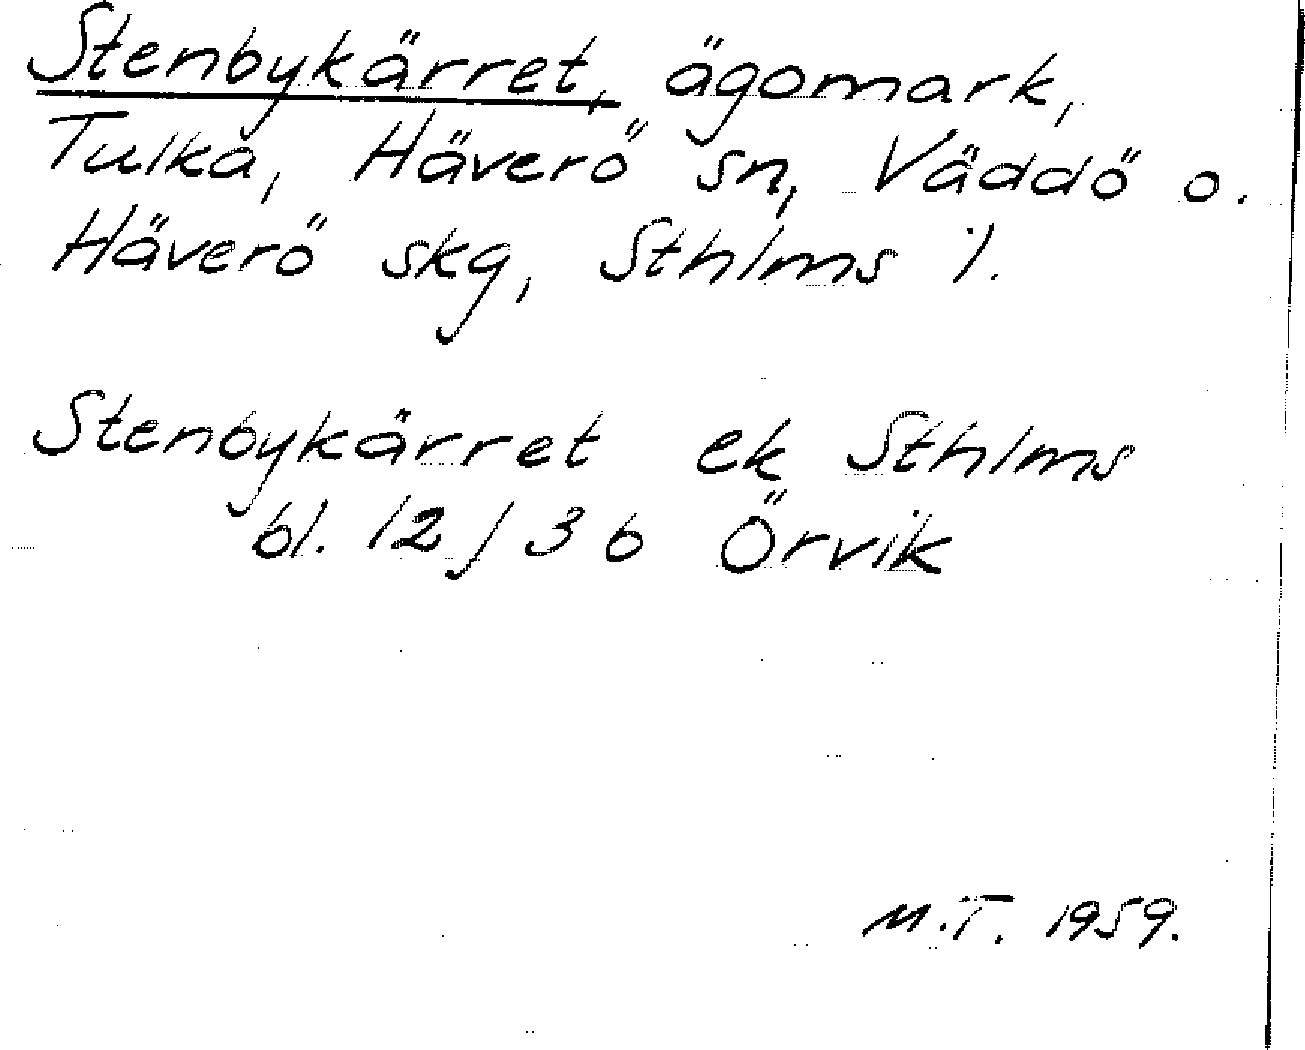 Stenbykärret, ägomark,
Tulka, Häverö sn, Väddö o.
Häverö skg, Sthlms l.
Stenbykärret ek Sthlms
bl. 12 j 3 b Örvik
M.T. 1959.